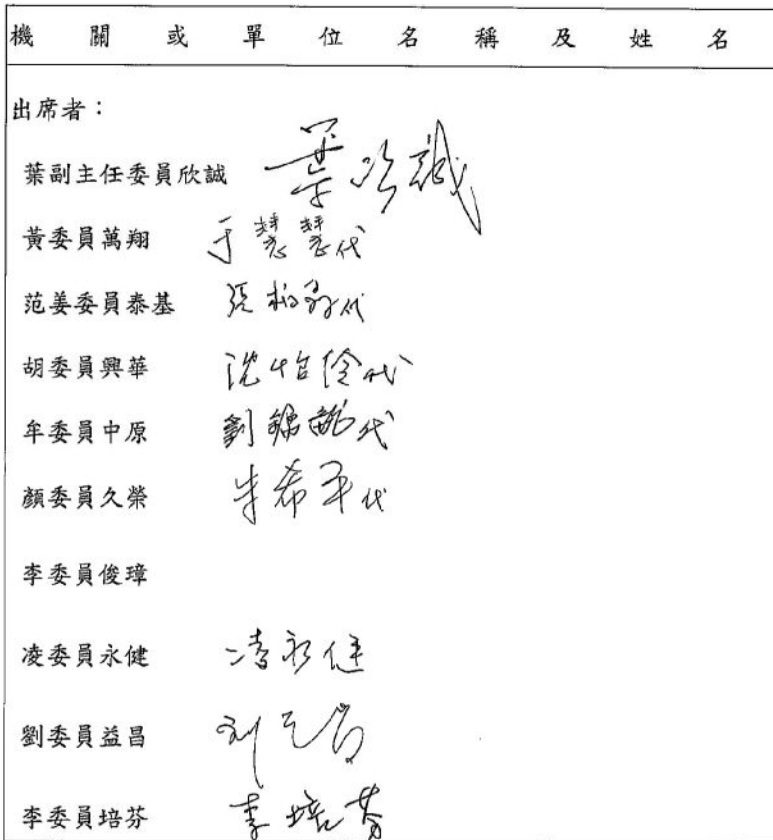 機關或單位名稱及姓名
出席者：
葉副主任委員欣誠 葉欣誠
黃委員萬翔 于慧慧代
范姜委員泰基 張柏 代
胡委員興華 沈怡伶代
牟委員中原 劉 代
顏委員久榮 朱希平代
李委員俊璋
凌委員永健 凌永健
劉委員益昌 刘益昌
李委員培芬 李培芬